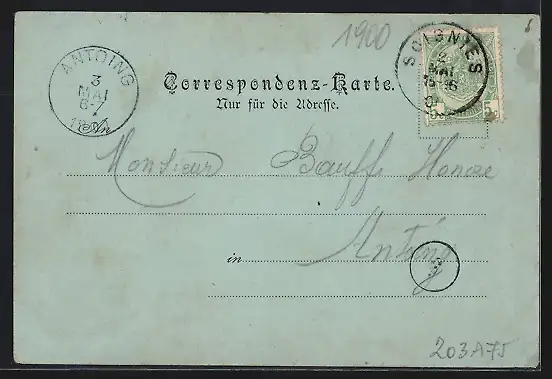 1900
ANTOING
3
MAI
6-7
SOIGNIES
2
MAI
5
5
Correspondenz-Karte.
Nur für die Adresse.
An
Monsieur Bauff
in Antoing
203A75